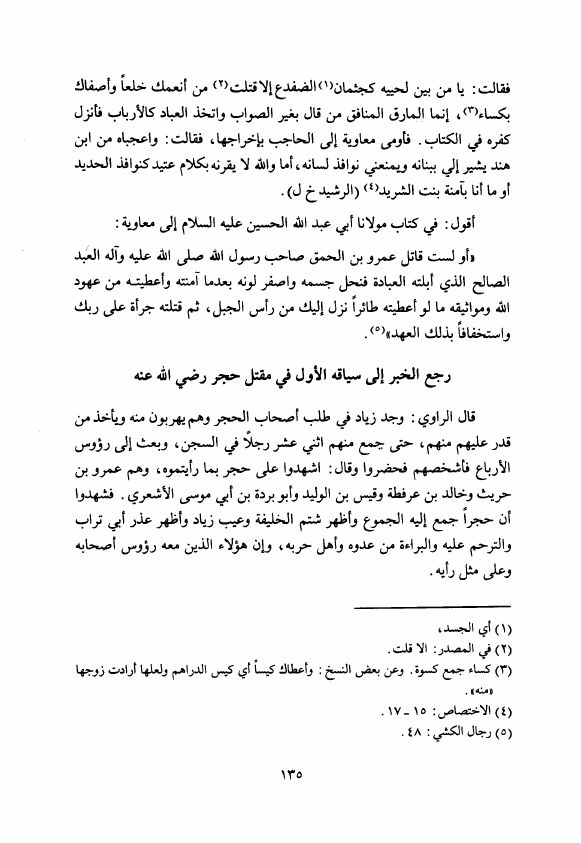 فقالت: يا من بين لحييه كجثمان(١) الضفدع إلا قتلت(٢) من أنعمك خلعاً وأصفاك
بكساء(٣)، إنما المارق المنافق من قال بغير الصواب واتخذ العباد كالأرباب فأنزل
كفره في الكتاب. فأومى معاوية إلى الحاجب بإخراجها، فقالت: واعجباه من ابن
هند يشير إلي ببنانه ويمنعني نوافذ لسانه، أما والله لا يقرنه بكلام عتيد كنوافذ الحديد
أو ما أنا بآمنة بنت الشريد(٤) (الرشيد خ ل).
أقول: في كتاب مولانا أبي عبد الله الحسين عليه السلام إلى معاوية:
«أو لست قاتل عمرو بن الحمق صاحب رسول الله صلى الله عليه وآله العبد
الصالح الذي أبلته العبادة فنحل جسمه واصفر لونه بعدما آمنته وأعطيته من عهود
الله ومواثيقه ما لو أعطيته طائراً نزل إليك من رأس الجبل، ثم قتلته جرأة على ربك
واستخفافاً بذلك العهد»(٥).
رجع الخبر إلى سياقه الأول في مقتل حجر رضي الله عنه
قال الراوي: وجد زياد في طلب أصحاب الحجر وهم يهربون منه ويأخذ من
قدر عليهم منهم، حتى جمع منهم اثني عشر رجلاً في السجن، وبعث إلى رؤوس
الأرباع فأشخصهم فحضروا وقال: اشهدوا على حجر بما رأيتموه، وهم عمرو بن
حريث وخالد بن عرفطة وقيس بن الوليد وأبو بردة بن أبي موسى الأشعري. فشهدوا
أن حجراً جمع إليه الجموع وأظهر شتم الخليفة وعيب زياد وأظهر عذر أبي تراب
والترحم عليه والبراءة من عدوه وأهل حربه، وإن هؤلاء الذين معه رؤوس أصحابه
وعلى مثل رأيه.
(١) أي الجسد،
(٢) في المصدر: الا قلت.
(٣) كساء جمع كسوة. وعن بعض النسخ: وأعطاك كيساً أي كيس الدراهم ولعلها أرادت زوجها
«منه».
(٤) الاختصاص: ١٥ ـ ١٧.
(٥) رجال الكشي: ٤٨.
١٣٥